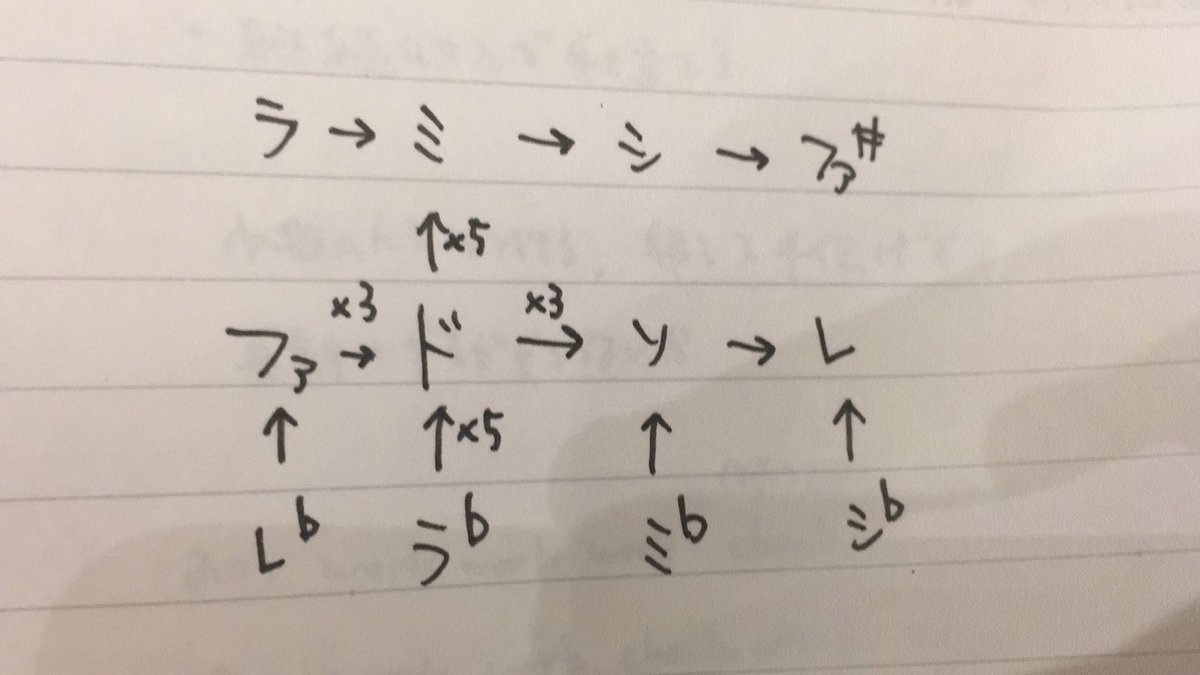 ラ → ミ → シ → ファ#
↑×5
ファ ×3→ ド ×3→ ソ → レ
↑ ↑×5 ↑ ↑
レb ラb ミb シb